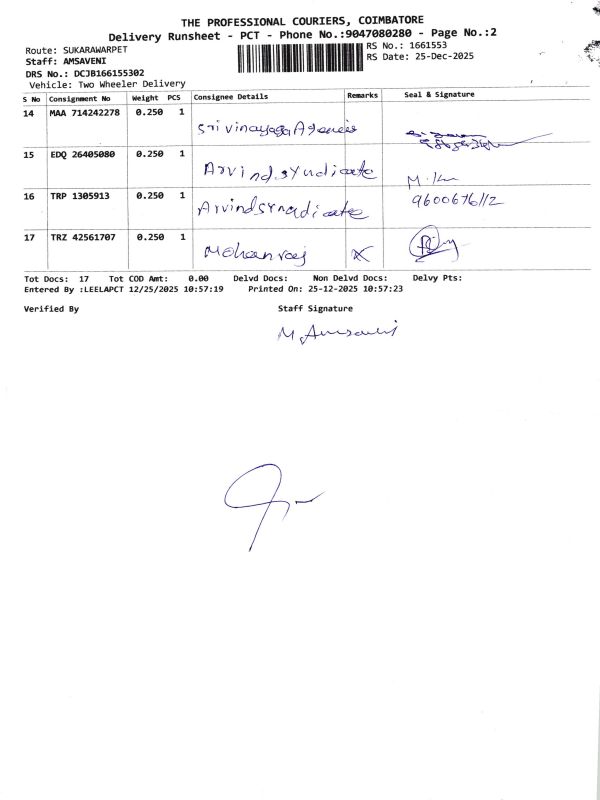 THE PROFESSIONAL COURIERS, COIMBATORE
Delivery Runsheet - PCT - Phone No.:9047080280 - Page No.:2
Route: SUKARAWARPET
RS No.: 1661553
Staff: AMSAVENI
RS Date: 25-Dec-2025
DRS No.: DCJB166155302
Vehicle: Two Wheeler Delivery
S No Consignment No Weight PCS Consignee Details Remarks Seal & Signature
14 MAA 714242278 0.250 1 Sri vinayaga Agencies
15 EDQ 26405080 0.250 1 Arvind syndicate
16 TRP 1305913 0.250 1 Arvind syndicate 9600676112
17 TRZ 42561707 0.250 1 Mohanraj
Tot Docs: 17 Tot COD Amt: 0.00 Delvd Docs: Non Delvd Docs: Delvy Pts:
Entered By :LEELAPCT 12/25/2025 10:57:19 Printed On: 25-12-2025 10:57:23
Verified By Staff Signature
M. Amsaveni